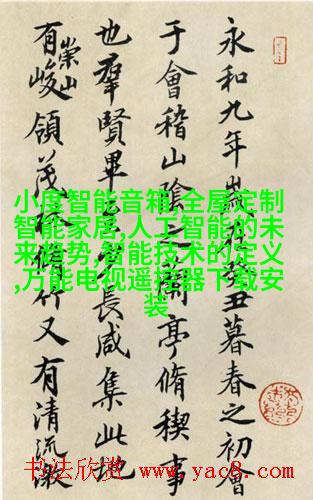 永和九年歲在癸丑暮春之初會
于會稽山陰之蘭亭脩稧事
也羣賢畢至少長咸集此地
有崇山峻領茂林脩竹又有清流激
小度智能音箱,全屋定制
智能家居,人工智能的未
来趋势,智能技术的定义
,万能电视遥控器下载安
装
书法欣赏 www.yac8.com